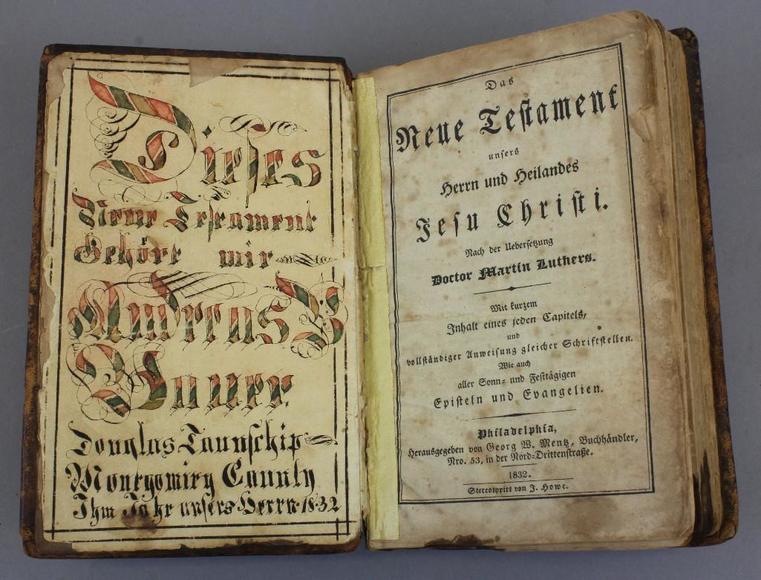 Dieses
Neue Testament
Gehört mir
Andreas B
Bauer
Douglas Taunschip
Montgomiry Caunty
Ihm Jahr unsers Herrn 1832
Das
Neue Testament
unsers
Herrn und Heilandes
Jesu Christi.
Nach der Uebersetzung
Doctor Martin Luthers.
Mit kurzem
Inhalt eines jeden Capitels,
und
vollständiger Anweisung gleicher Schriftstellen.
Wie auch
aller Sonn- und Festtägigen
Episteln und Evangelien.
Philadelphia,
Herausgegeben von Georg W. Mentz, Buchhändler,
Nro. 53, in der Nord-Drittenstraße.
1832.
Stereotypirt von J. Howe.